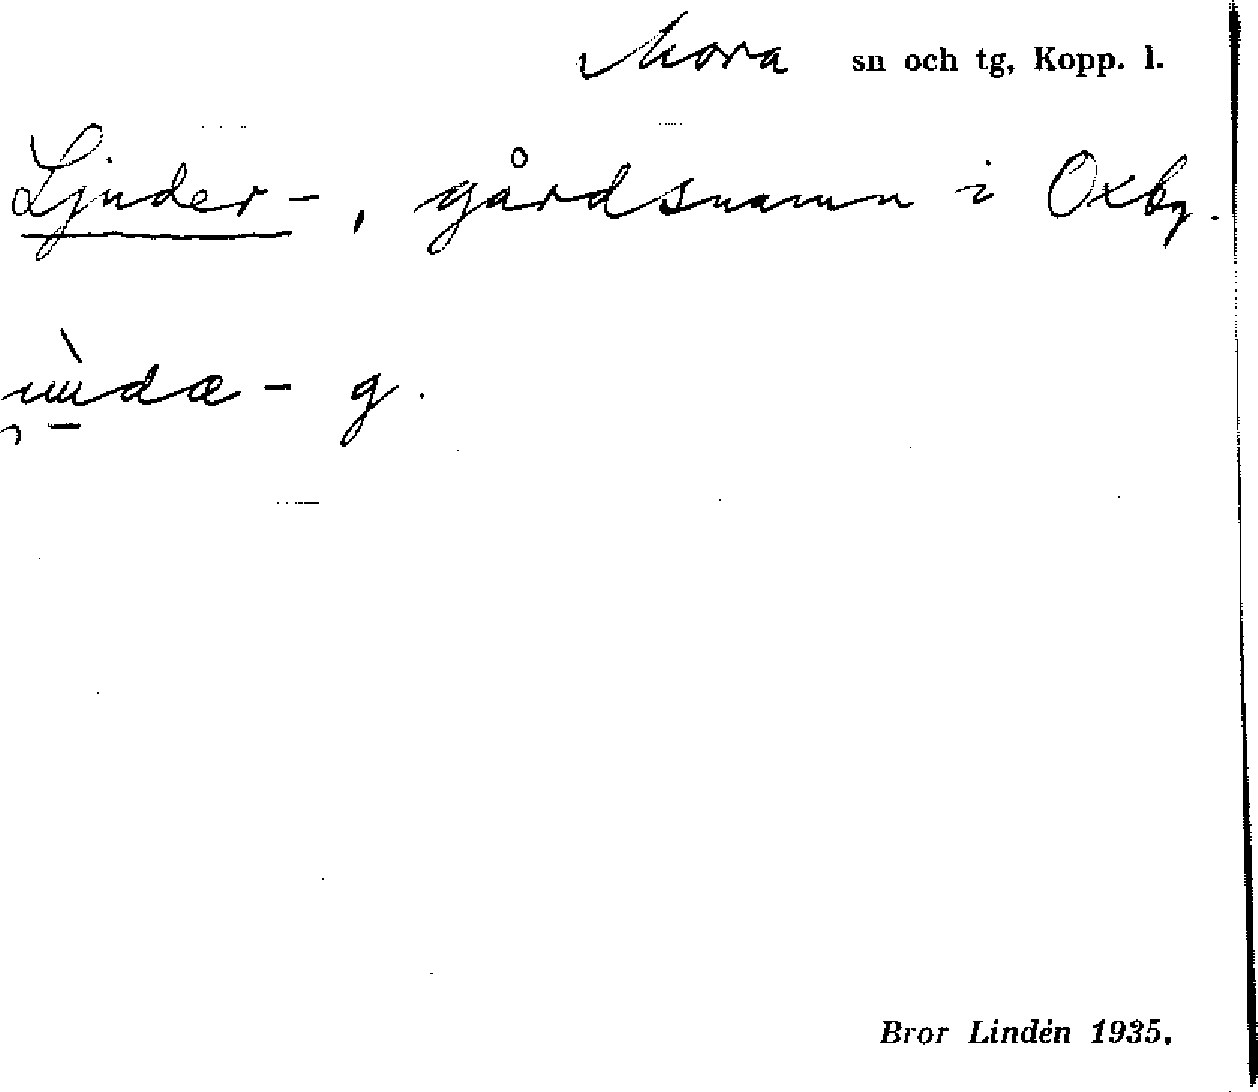 Mora sn och tg, Kopp. l.
Ljuder-, gårdsnamn i Oxbg.
g.
Bror Lindén 1935.